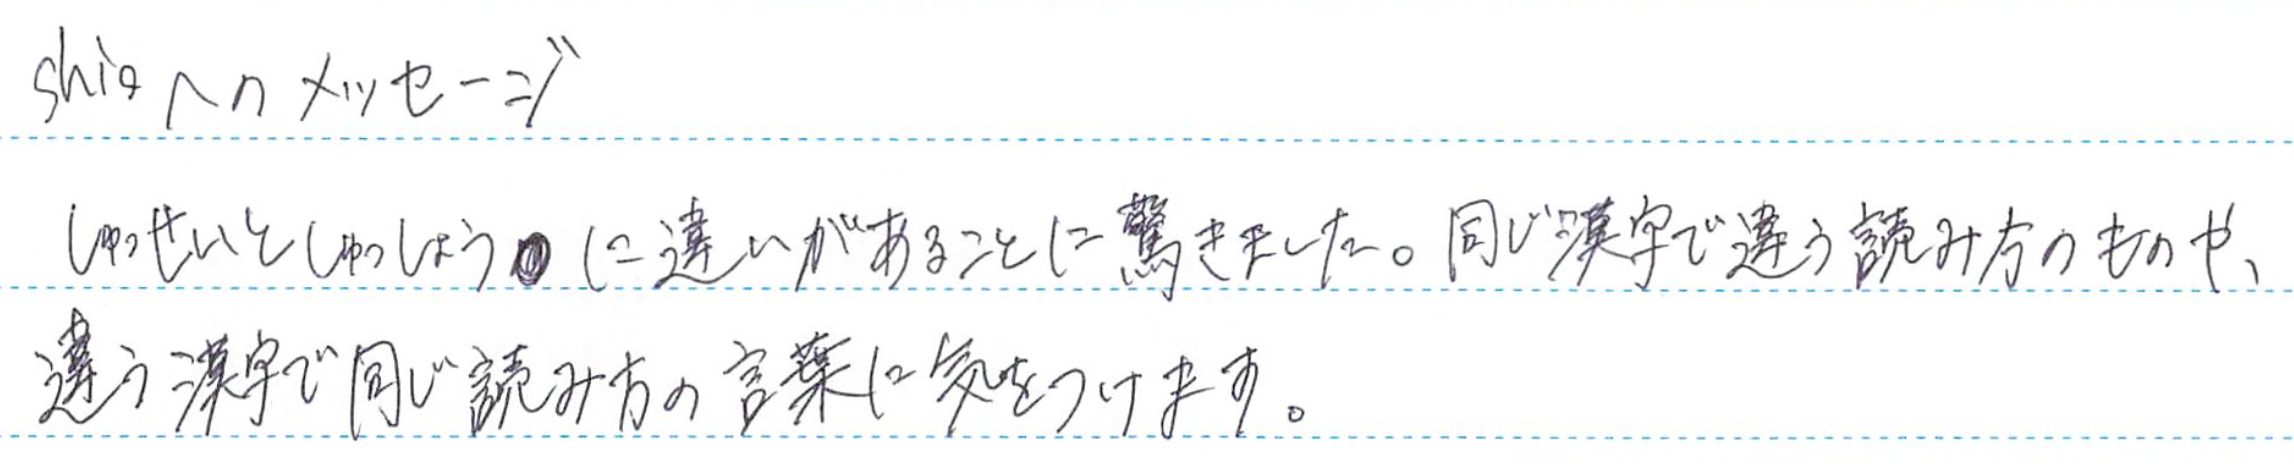 shiaへのメッセージ
しゅっせいとしゅっしょうに違いがあることに驚きました。同じ漢字で違う読み方のものや、
違う漢字で同じ読み方の言葉に気をつけます。